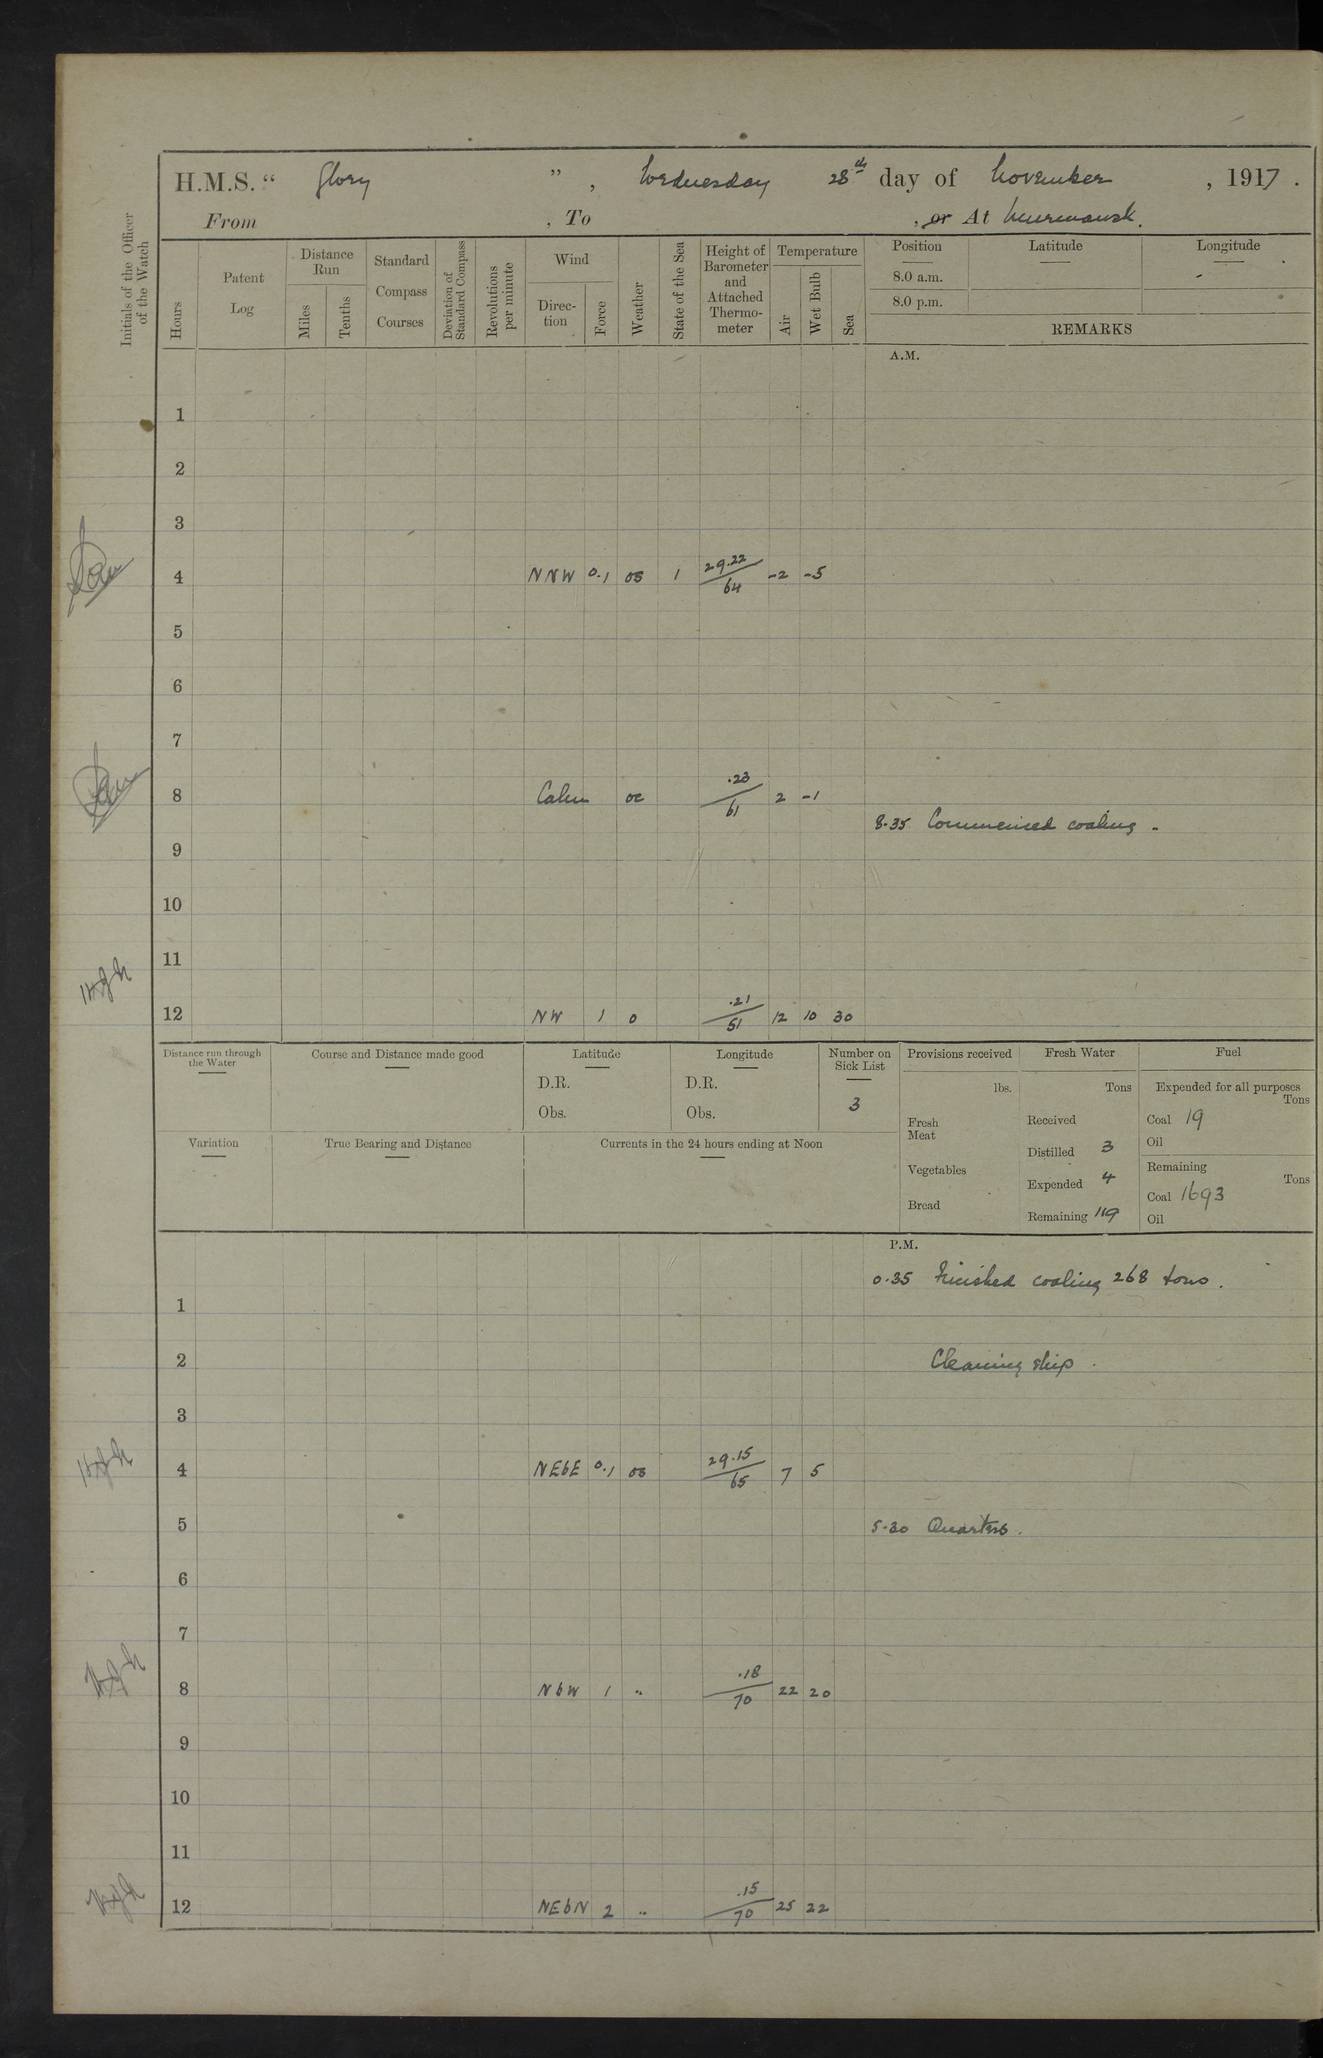 H.M.S. “ Glory ” , Wednesday 28th day of November , 1917 .
From , To , or At Murmansk.
Initials of the Officer of the Watch
Hours
Patent Log
Distance Run
Miles
Tenths
Standard Compass Courses
Deviation of Standard Compass
Revolutions per minute
Wind
Direc-tion
Force
Weather
State of the Sea
Height of Barometer and Attached Thermo-meter
Temperature
Air
Wet Bulb
Sea
Position Latitude Longitude
8.0 a.m.
8.0 p.m.
REMARKS
A.M.
1
2
3
4 NNW 0.1 os 1 29.22/64 -2 -5
5
6
7
8 Calm oc .23/61 2 -1
8.35 Commenced coaling -
9
10
11
12 NW 1 o .21/51 12 10 30
Distance run through the Water
Course and Distance made good
Latitude
D.R.
Obs.
Longitude
D.R.
Obs.
Number on Sick List
3
Provisions received
lbs.
Fresh Meat
Vegetables
Bread
Fresh Water
Tons
Received
Distilled 3
Expended 4
Remaining 119
Fuel
Expended for all purposes
Tons
Coal 19
Oil
Remaining
Tons
Coal 1693
Oil
Variation
True Bearing and Distance
Currents in the 24 hours ending at Noon
P.M.
0.35 Finished coaling 268 tons.
1
2 Cleaning ship.
3
4 NEbE 0.1 os 29.15/65 7 5
5 5.30 Quarters.
6
7
8 NbW 1 " .18/70 22 20
9
10
11
12 NEbN 2 " .15/70 25 22